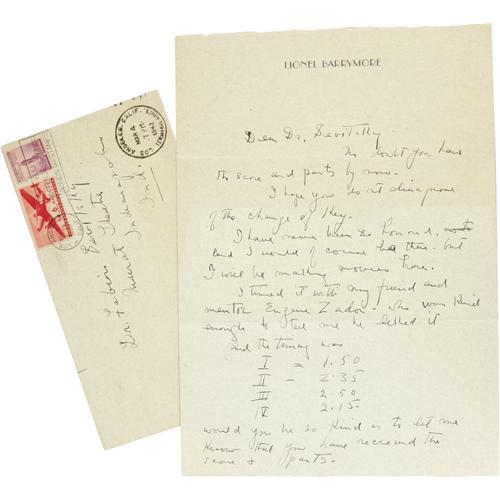 LIONEL BARRYMORE
Dear Dr. Sevitzky
No doubt you have
the score and parts by now.
I hope you do not disapprove
of the change of Key.
I have never been so honored,
and I would of course be there - but
I will be making movies here.
I timed it with my friend and
mentor Eugene Zador - who was kind
enough to tell me he liked it
and the timing was
I = 1.50
II - 2.35
III 2.50
IV 2.15-
would you be so kind as to let me
know that you have received the
score & parts-
LOS ANGELES, CALIF.
MAR 4
7 PM
Dr. Fabien Sevitzky
Murat Theatre
Indianapolis
Ind